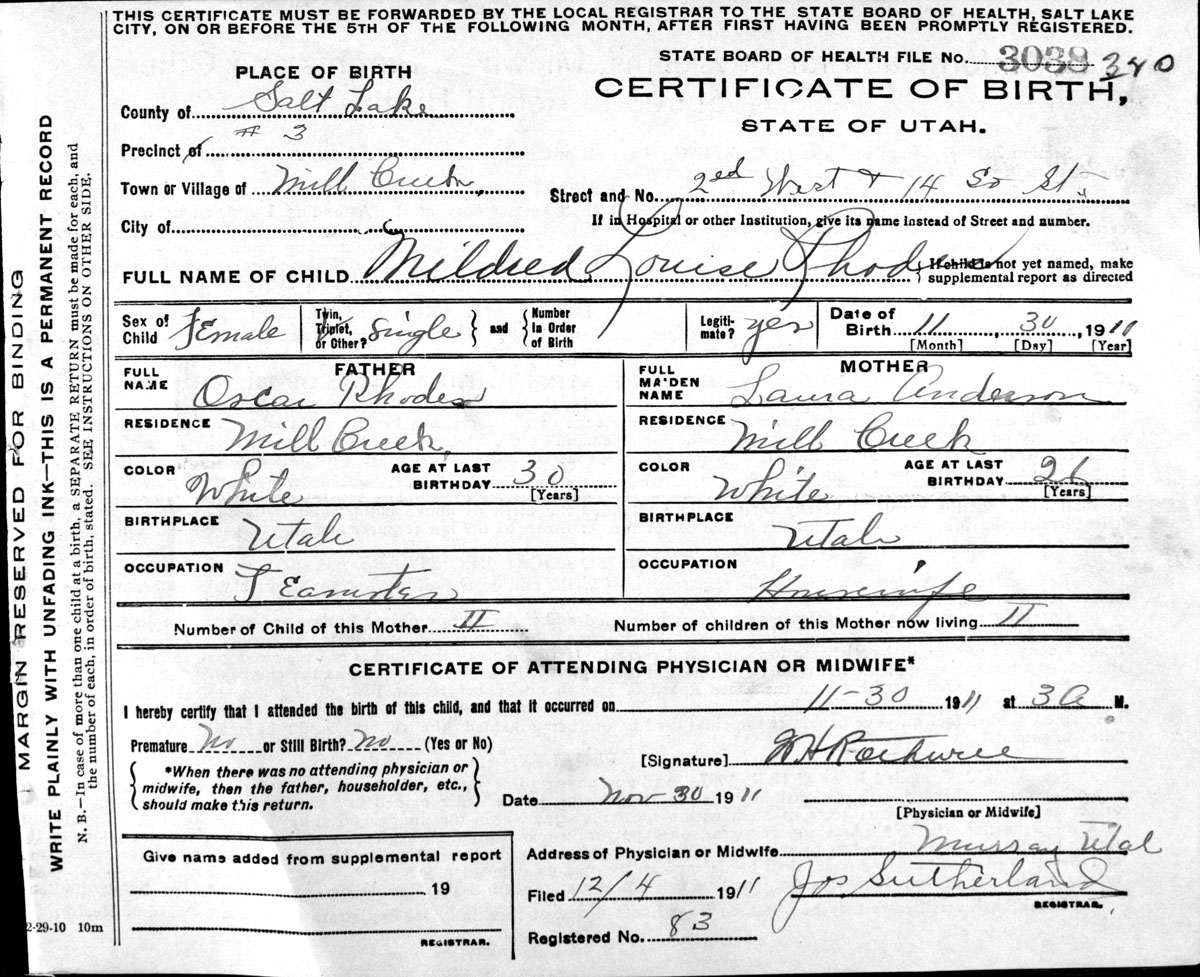 THIS CERTIFICATE MUST BE FORWARDED BY THE LOCAL REGISTRAR TO THE STATE BOARD OF HEALTH, SALT LAKE
CITY, ON OR BEFORE THE 5TH OF THE FOLLOWING MONTH, AFTER FIRST HAVING BEEN PROMPTLY REGISTERED.
STATE BOARD OF HEALTH FILE No. 3038 340
PLACE OF BIRTH
CERTIFICATE OF BIRTH,
STATE OF UTAH.
County of Salt Lake
Precinct of # 3
Town or Village of Mill Creek,
Street and No. 2ed West & 14 So St.
City of
If in Hospital or other Institution, give its name instead of Street and number.
FULL NAME OF CHILD Mildred Louise Rhodes
If child is not yet named, make
supplemental report as directed
Sex of Child Female
Twin, Triplet, or Other? Single and Number In Order of Birth
Legitimate? yes
Date of Birth 11 30 1911
[Month] [Day] [Year]
FATHER
FULL NAME Oscar Rhodes
RESIDENCE Mill Creek,
COLOR White AGE AT LAST BIRTHDAY 30 [Years]
BIRTHPLACE Utah
OCCUPATION Teamster
MOTHER
FULL MAIDEN NAME Laura Anderson
RESIDENCE Mill Creek
COLOR White AGE AT LAST BIRTHDAY 26 [Years]
BIRTHPLACE Utah
OCCUPATION Housewife
Number of Child of this Mother II
Number of children of this Mother now living II
CERTIFICATE OF ATTENDING PHYSICIAN OR MIDWIFE*
I hereby certify that I attended the birth of this child, and that it occurred on 11-30 1911 at 3 a M.
Premature No or Still Birth? No (Yes or No)
*When there was no attending physician or
midwife, then the father, householder, etc.,
should make this return.
[Signature]
Date Nov 30 1911
[Physician or Midwife]
Give name added from supplemental report
19
REGISTRAR.
Address of Physician or Midwife Murray Utah
Filed 12/4 1911 Jos Sutherland
REGISTRAR.
Registered No. 83
2-29-10 10m
MARGIN RESERVED FOR BINDING
WRITE PLAINLY WITH UNFADING INK—THIS IS A PERMANENT RECORD
N. B.—In case of more than one child at a birth, a SEPARATE RETURN must be made for each, and
the number of each, in order of birth, stated. SEE INSTRUCTIONS ON OTHER SIDE.